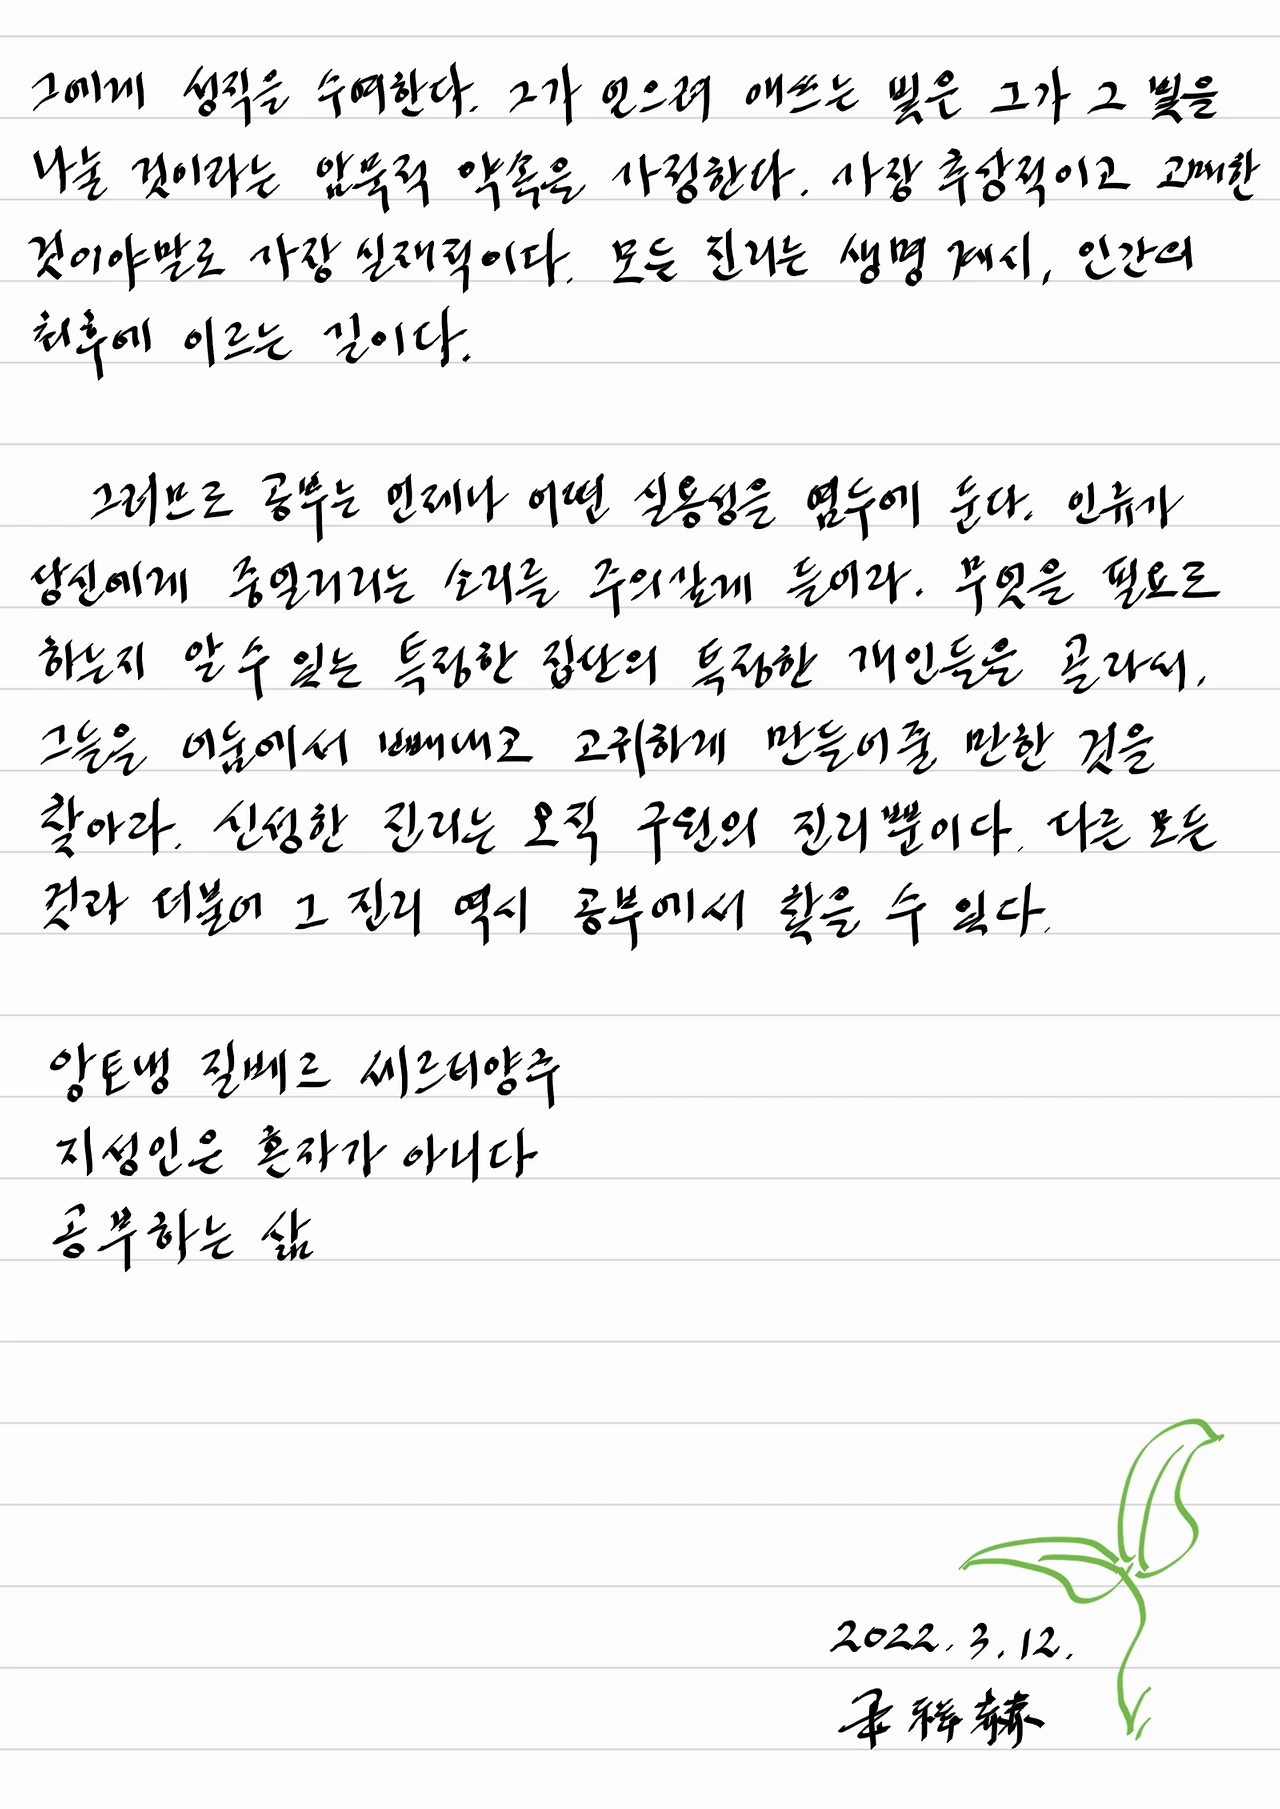 그에게 성직을 수여한다. 그가 얻으려 애쓰는 빛은 그가 그 빛을
나눌 것이라는 암묵적 약속을 상정한다. 가장 추상적이고 고매한
것이야말로 가장 실재적이다. 모든 진리는 생명 계시, 인간의
최후에 이르는 길이다.
그러므로 공부는 언제나 어떤 실용성을 염두에 둔다. 인류가
당신에게 중얼거리는 소리를 주의깊게 들어라. 무엇을 필요로
하는지 알 수 있는 특정한 집단의 특정한 개인들을 골라서,
그들을 어둠에서 빼내고 고귀하게 만들어줄 만한 것을
찾아라. 신성한 진리는 오직 구원의 진리뿐이다. 다른 모든
것과 더불어 그 진리 역시 공부에서 찾을 수 있다.
앙토냉 질베르 쎄르티양주
지성인은 혼자가 아니다
공부하는 삶
2022. 3. 12.
祥赫